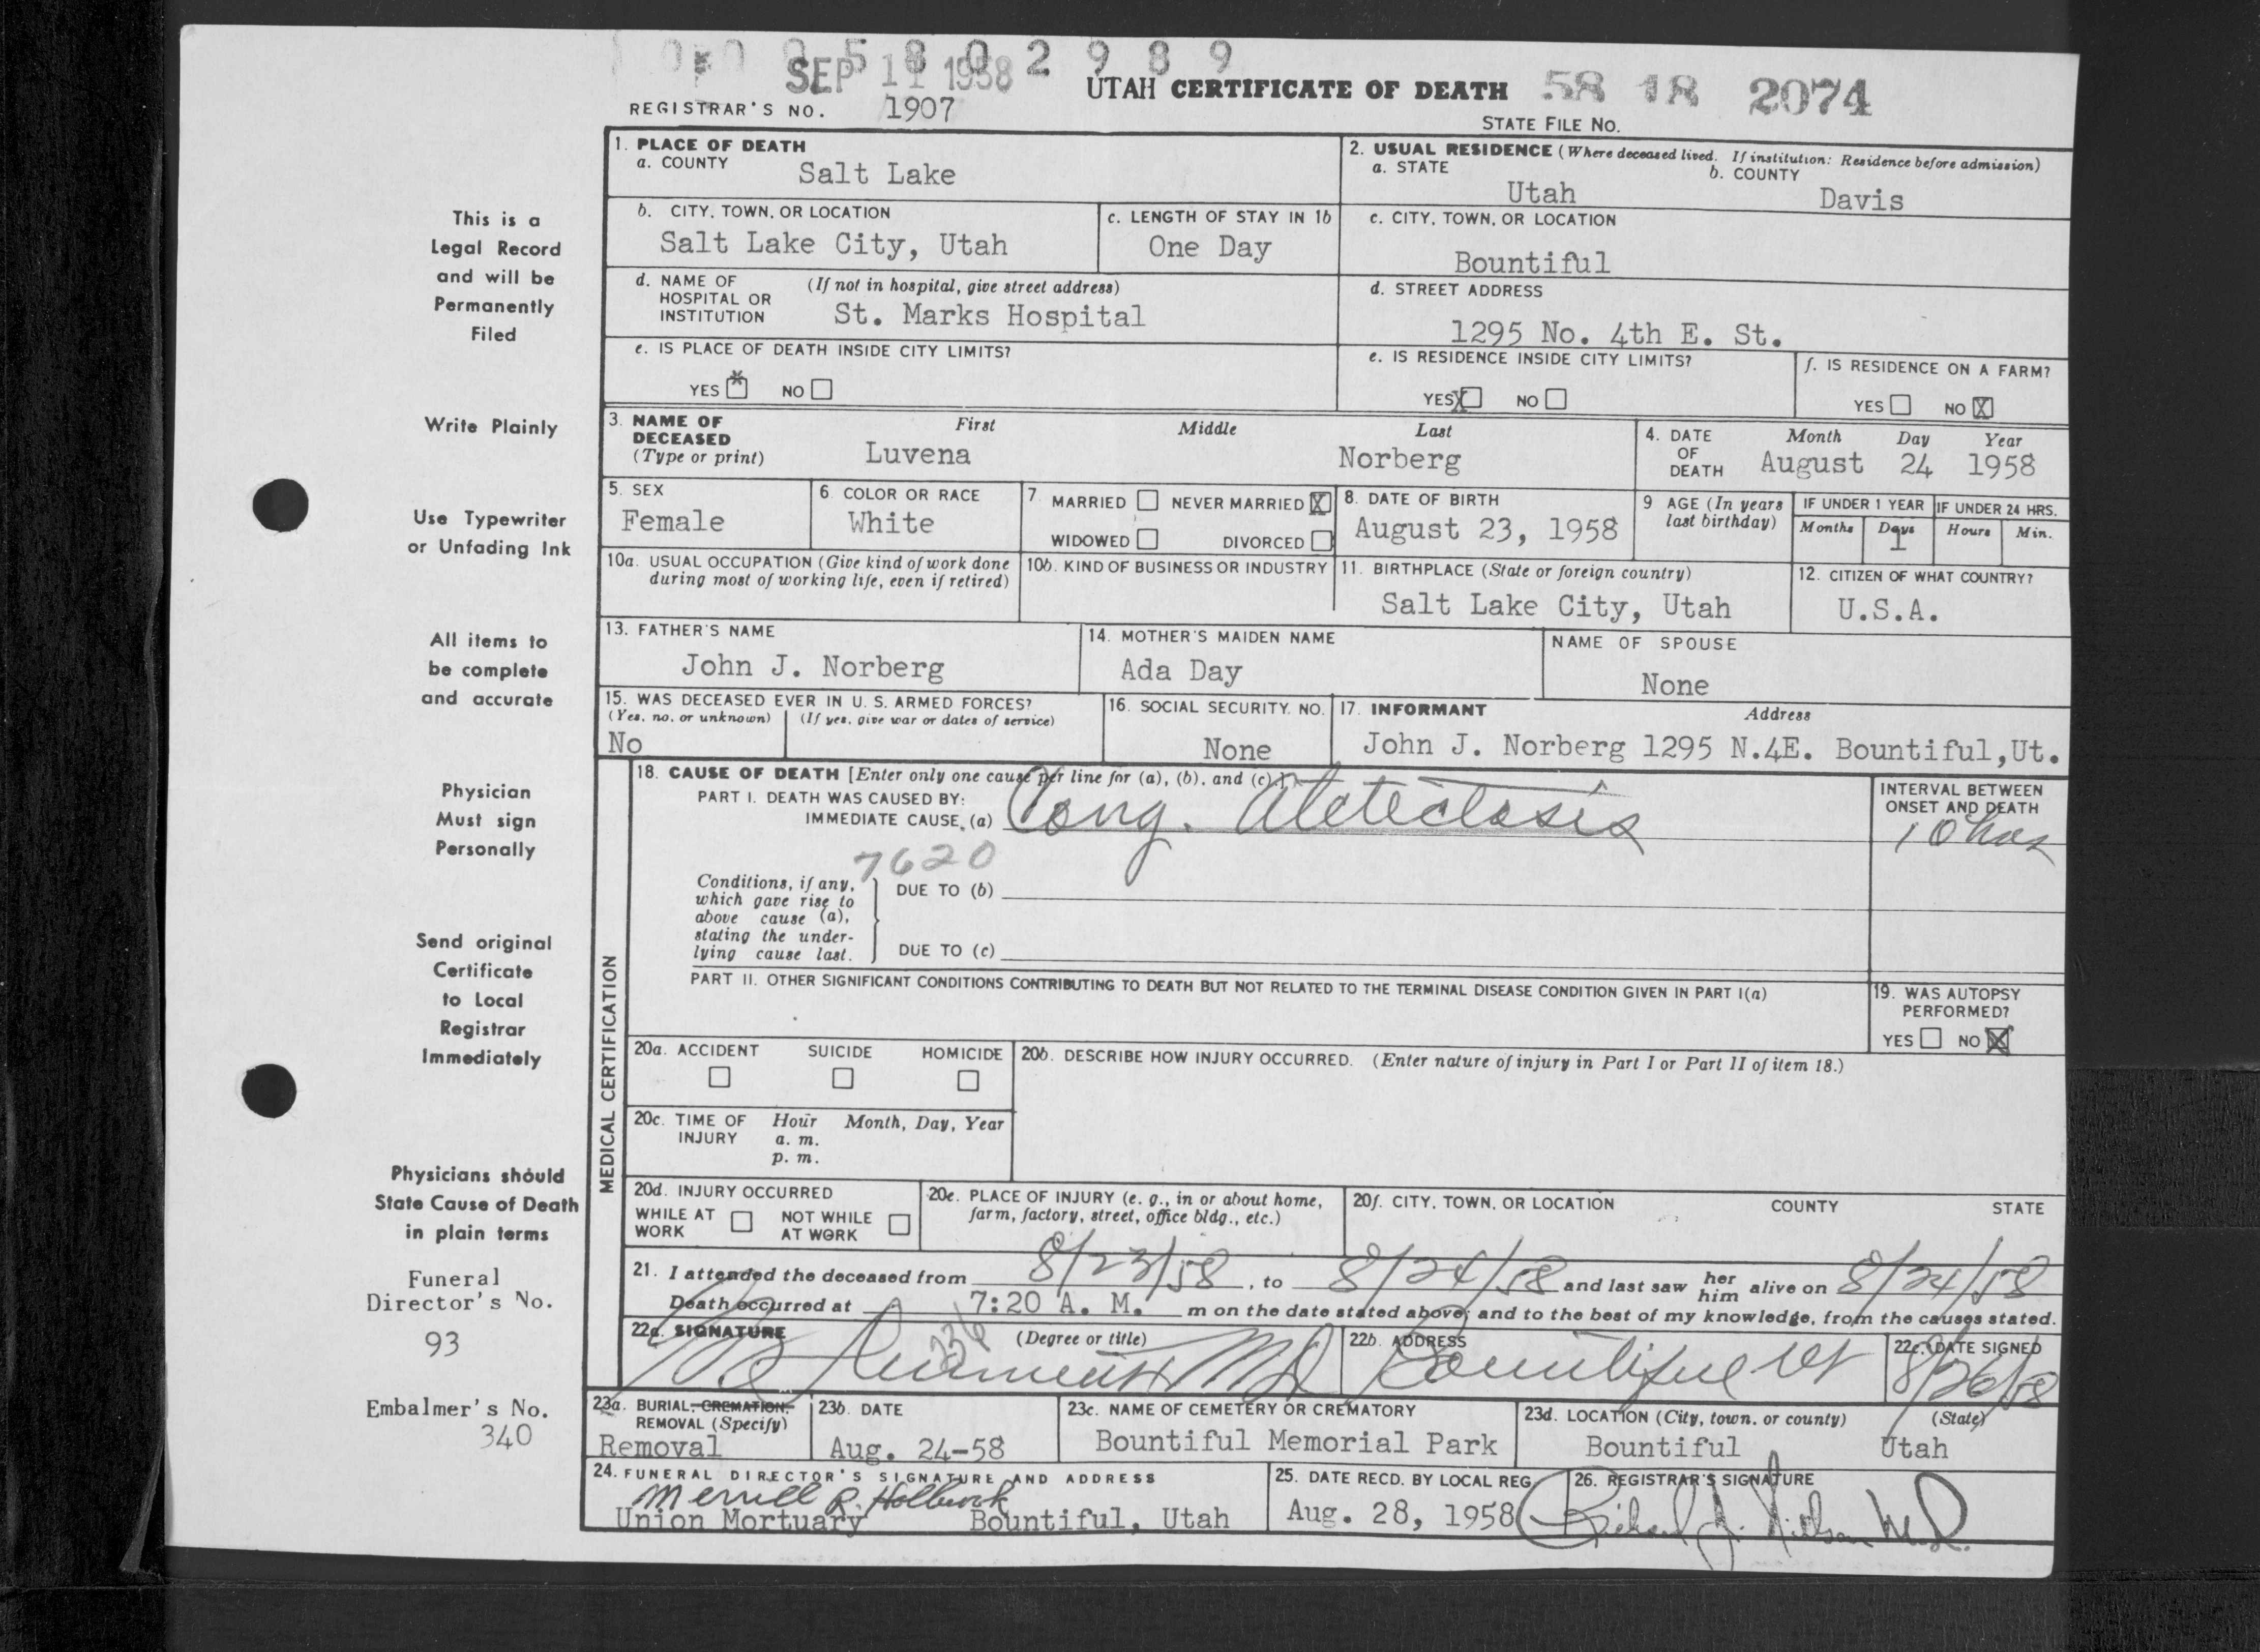 SEP 11 1958
UTAH CERTIFICATE OF DEATH 58 18 2074
REGISTRAR'S NO. 1907
STATE FILE NO.
1. PLACE OF DEATH
a. COUNTY
Salt Lake
2. USUAL RESIDENCE (Where deceased lived. If institution: Residence before admission)
a. STATE b. COUNTY
Utah Davis
b. CITY, TOWN, OR LOCATION
Salt Lake City, Utah
c. LENGTH OF STAY IN 1b
One Day
c. CITY, TOWN, OR LOCATION
Bountiful
d. NAME OF HOSPITAL OR INSTITUTION (If not in hospital, give street address)
St. Marks Hospital
d. STREET ADDRESS
1295 No. 4th E. St.
e. IS PLACE OF DEATH INSIDE CITY LIMITS?
YES X NO
e. IS RESIDENCE INSIDE CITY LIMITS?
YES X NO
f. IS RESIDENCE ON A FARM?
YES NO X
3. NAME OF DECEASED (Type or print)
First Middle Last
Luvena Norberg
4. DATE OF DEATH
Month Day Year
August 24 1958
5. SEX
Female
6. COLOR OR RACE
White
7. MARRIED NEVER MARRIED X
WIDOWED DIVORCED
8. DATE OF BIRTH
August 23, 1958
9 AGE (In years last birthday)
IF UNDER 1 YEAR
Months Days
1
IF UNDER 24 HRS.
Hours Min.
10a. USUAL OCCUPATION (Give kind of work done during most of working life, even if retired)
10b. KIND OF BUSINESS OR INDUSTRY
11. BIRTHPLACE (State or foreign country)
Salt Lake City, Utah
12. CITIZEN OF WHAT COUNTRY?
U.S.A.
13. FATHER'S NAME
John J. Norberg
14. MOTHER'S MAIDEN NAME
Ada Day
NAME OF SPOUSE
None
15. WAS DECEASED EVER IN U. S. ARMED FORCES?
(Yes, no, or unknown) (If yes, give war or dates of service)
No
16. SOCIAL SECURITY NO.
None
17. INFORMANT Address
John J. Norberg 1295 N.4E. Bountiful,Ut.
MEDICAL CERTIFICATION
18. CAUSE OF DEATH [Enter only one cause per line for (a), (b), and (c).]
PART I. DEATH WAS CAUSED BY:
IMMEDIATE CAUSE (a) Cong. Atelectasis
INTERVAL BETWEEN ONSET AND DEATH
10 hrs
7620
Conditions, if any, which gave rise to above cause (a), stating the underlying cause last.
DUE TO (b)
DUE TO (c)
PART II. OTHER SIGNIFICANT CONDITIONS CONTRIBUTING TO DEATH BUT NOT RELATED TO THE TERMINAL DISEASE CONDITION GIVEN IN PART I(a)
19. WAS AUTOPSY PERFORMED?
YES NO X
20a. ACCIDENT SUICIDE HOMICIDE
20b. DESCRIBE HOW INJURY OCCURRED. (Enter nature of injury in Part I or Part II of item 18.)
20c. TIME OF INJURY Hour Month, Day, Year
a. m.
p. m.
20d. INJURY OCCURRED
WHILE AT WORK NOT WHILE AT WORK
20e. PLACE OF INJURY (e. g., in or about home, farm, factory, street, office bldg., etc.)
20f. CITY, TOWN, OR LOCATION COUNTY STATE
21. I attended the deceased from 8/23/58, to 8/24/58 and last saw her him alive on 8/24/58
Death occurred at 7:20 A. M. m on the date stated above; and to the best of my knowledge, from the causes stated.
22a. SIGNATURE (Degree or title)
MD
22b. ADDRESS
Bountiful Ut
22c. DATE SIGNED
8/26/58
23a. BURIAL, CREMATION, REMOVAL (Specify)
Removal
23b. DATE
Aug. 24-58
23c. NAME OF CEMETERY OR CREMATORY
Bountiful Memorial Park
23d. LOCATION (City, town, or county) (State)
Bountiful Utah
24. FUNERAL DIRECTOR'S SIGNATURE AND ADDRESS
Merrill R. Holbrook
Union Mortuary Bountiful, Utah
25. DATE RECD. BY LOCAL REG.
Aug. 28, 1958
26. REGISTRAR'S SIGNATURE
Richard J. Nielson M.D.
This is a
Legal Record
and will be
Permanently
Filed
Write Plainly
Use Typewriter
or Unfading Ink
All items to
be complete
and accurate
Physician
Must sign
Personally
Send original
Certificate
to Local
Registrar
Immediately
Physicians should
State Cause of Death
in plain terms
Funeral
Director's No.
93
Embalmer's No.
340